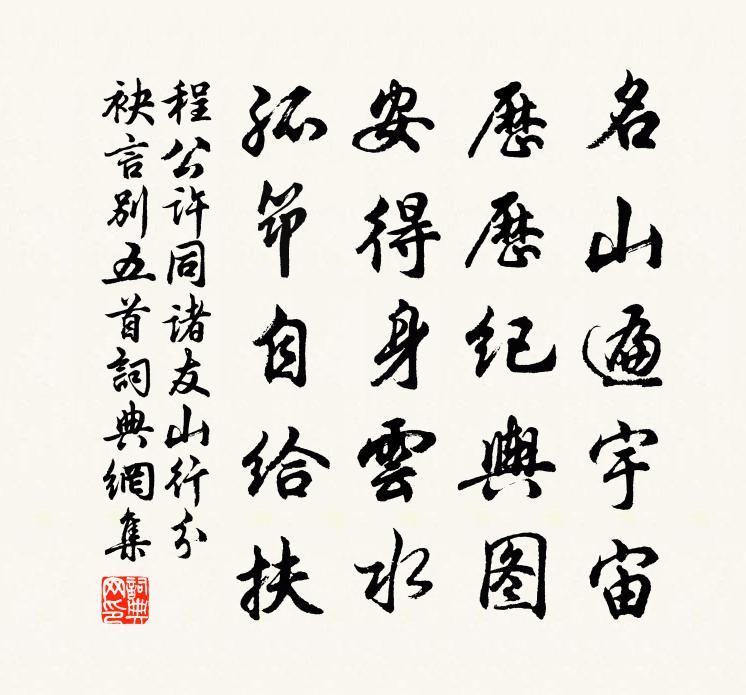 名山遍宇宙
歷歷紀輿图
安得身雲水
孤筇自给扶
程公許同諸友山行分
袂言別五首詞典網集
詞典
网印